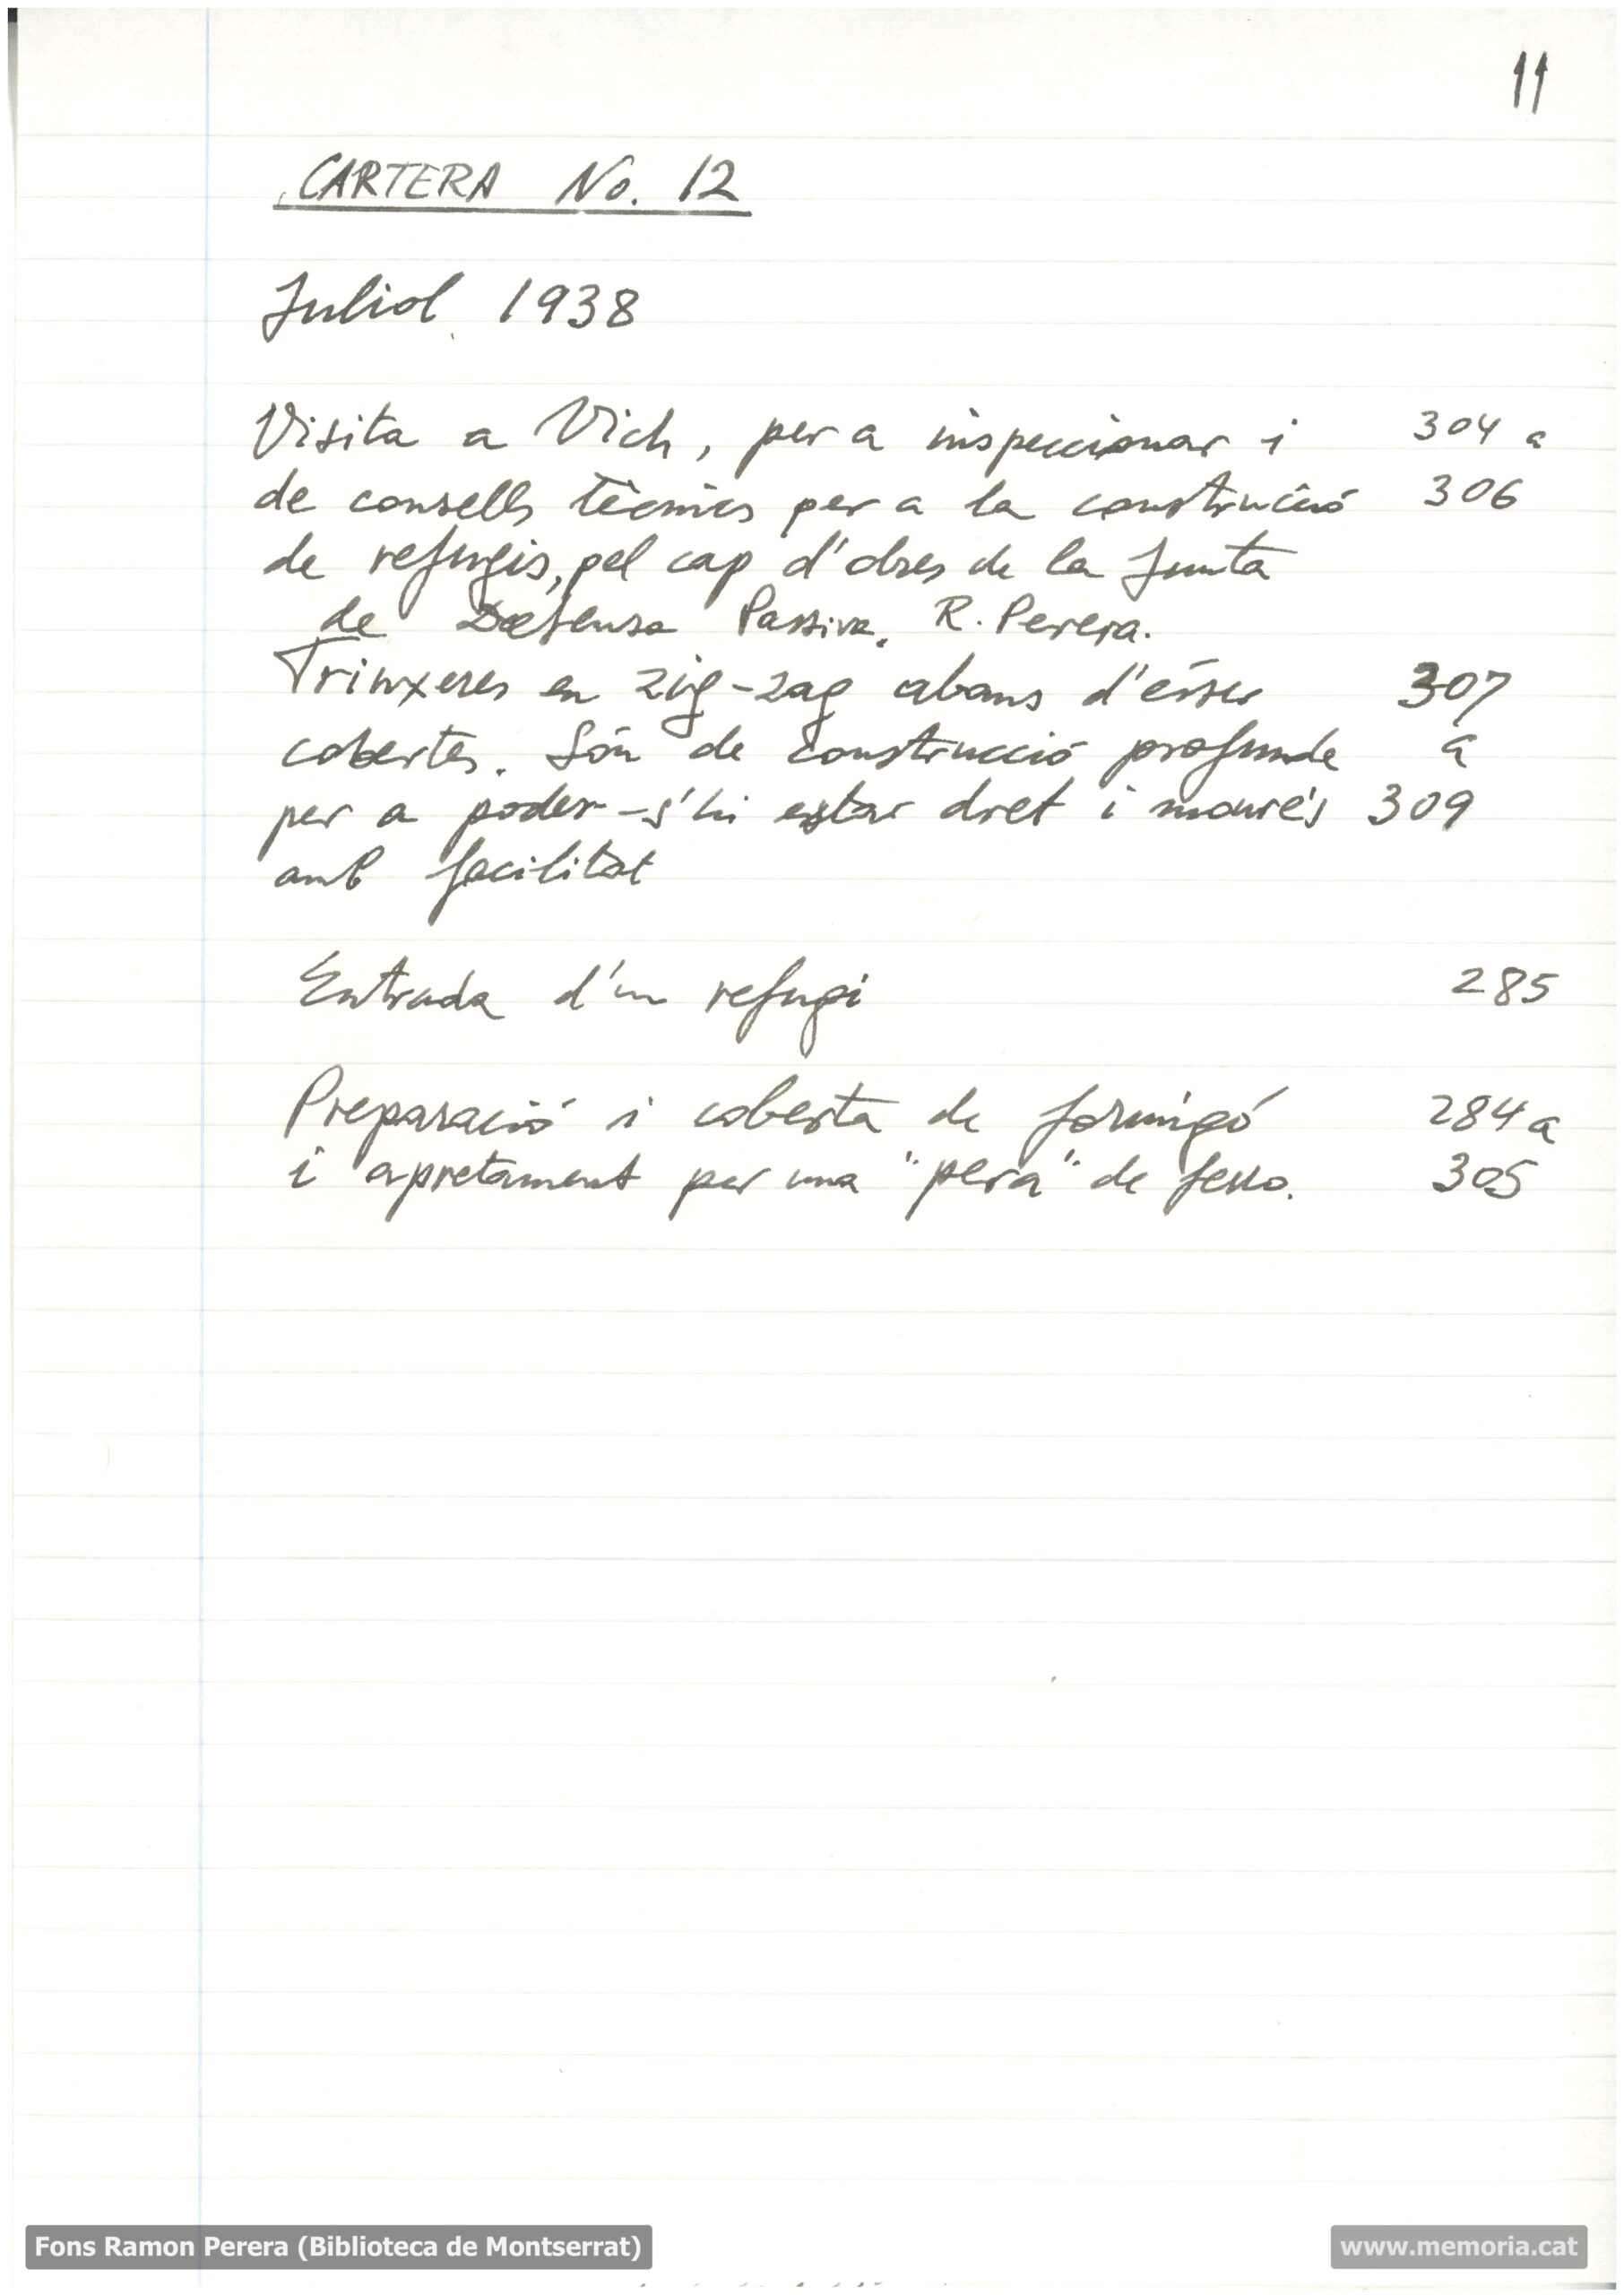 11
CARTERA No. 12
Juliol 1938
Visita a Vich, per a inspeccionar i 304 a
de consells tècnics per a la construcció 306
de refugis, pel cap d'obres de la Junta
de Defensa Passiva, R. Perera.
Trinxeres en zig-zag abans d'ésser 307
cobertes. Són de construcció profunde a
per a poder-s'hi estar dret i moure's 309
amb facilitat
Entrada d'un refugi 285
Preparació i coberta de formigó 284 a
i apretament per una "pera" de ferro. 305
Fons Ramon Perera (Biblioteca de Montserrat)
www.memoria.cat